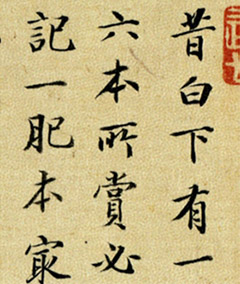 昔白下有一
六本所賞必
記一肥本寂